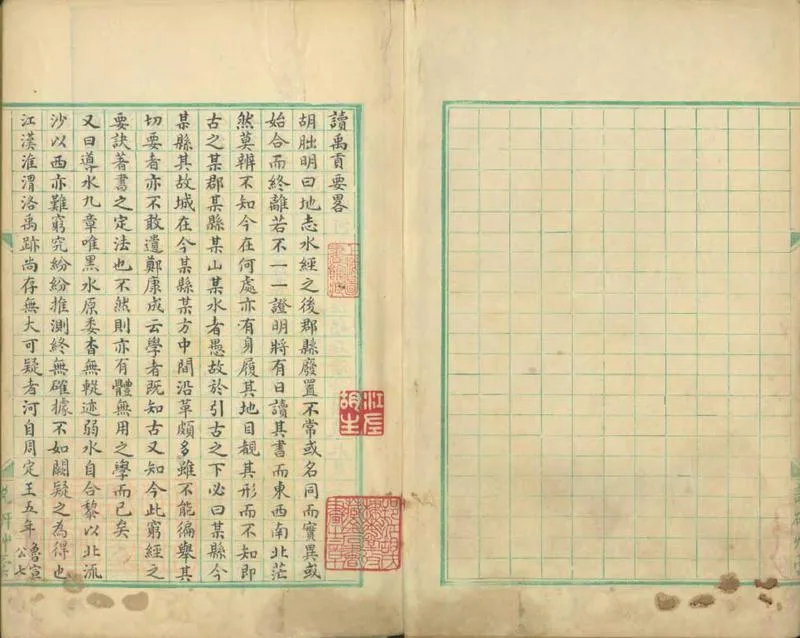 讀禹貢要畧
胡朏明曰地志水經之後郡縣廢置不常或名同而實異或
始合而終離若不一一證明將有日讀其書而東西南北茫
然莫辨不知今在何處亦有身履其地目覩其形而不知即
古之某郡某縣某山某水者愚故於引古之下必曰某縣今
某縣其故城在今某縣某方中間沿革頗多雖不能徧舉其
切要者亦不敢遺鄭康成云學者既知古又知今此窮經之
要訣著書之定法也不然則亦有體無用之學而已矣
又曰導水九章唯黑水原委杳無蹤迹弱水自合黎以北流
沙以西亦難窮究紛紛推測終無確據不如闕疑之為得也
江漢淮渭洛禹跡尚存無大可疑者河自周定王五年魯宣公七
江左
胡生